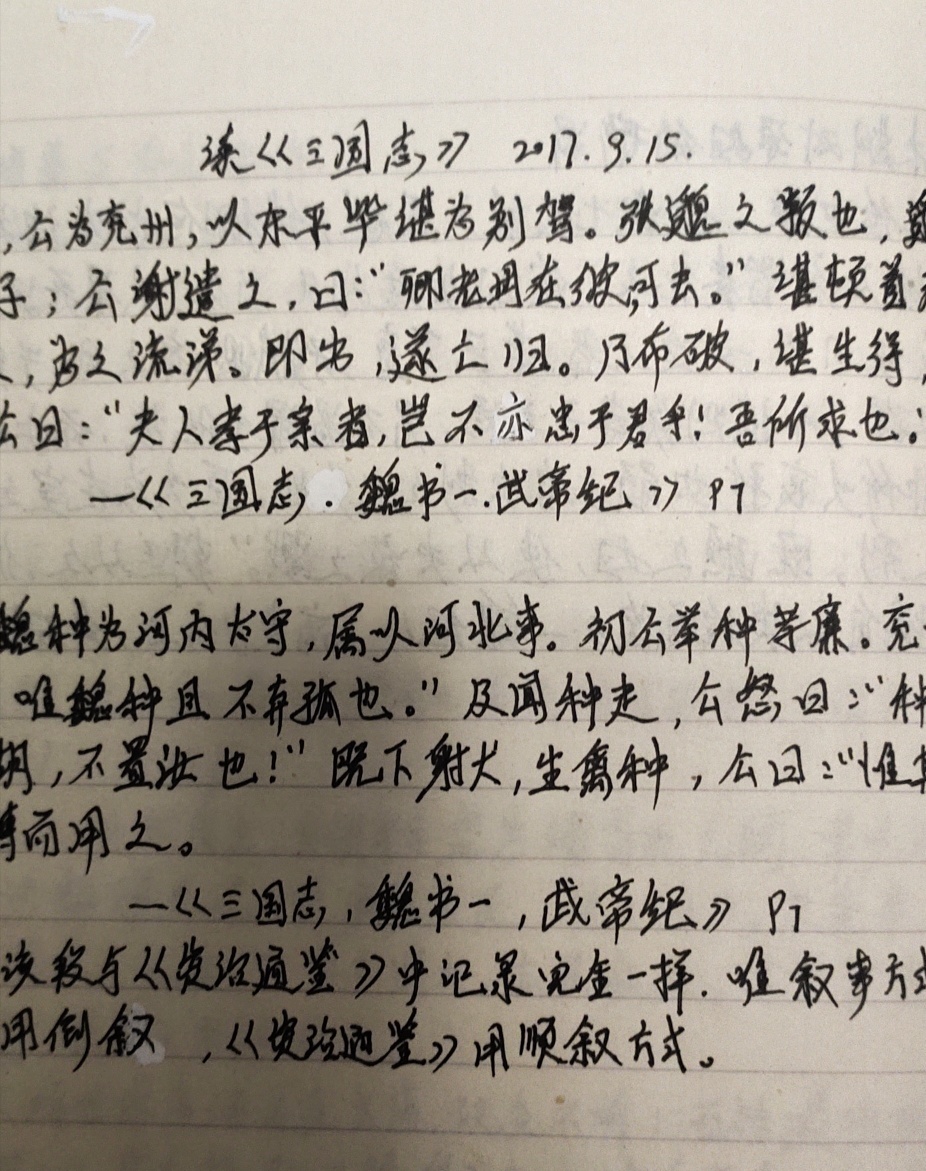 读《三国志》 2017.9.15.
,公为兖州,以东平毕堪为别驾。张邈之叛也,邈
子;公谢遣之,曰:“卿老母在彼,可去。”堪顿首
,为之流涕。即出,遂亡归。乃布破,堪生得,
公曰:“夫人孝于亲者,岂不亦忠于君乎!吾所求也。”
—《三国志.魏书一.武帝纪》P7
魏种为河内太守,属以河北事。初公举种孝廉。兖
唯魏种且不弃孤也。”及闻种走,公怒曰:“种
胡,不置汝也!”既下射犬,生禽种,公曰:“惟其
而用之。
—《三国志,魏书一,武帝纪》P7
该段与《资治通鉴》中记录完全一样.唯叙事方式
用倒叙,《资治通鉴》用顺叙方式。